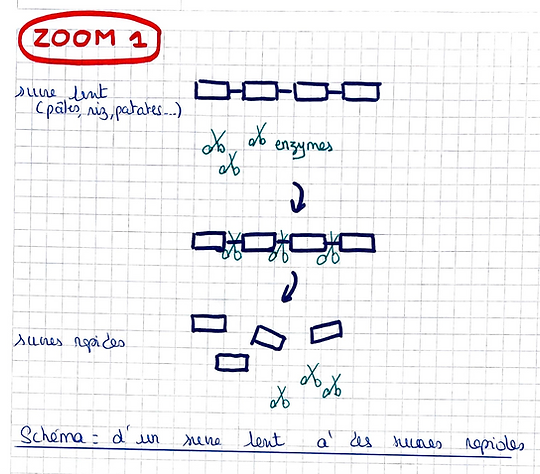 ZOOM 1
sucre lent
(pâtes, riz, patates...)
enzymes
sucres rapides
Schéma = d'un sucre lent à des sucres rapides